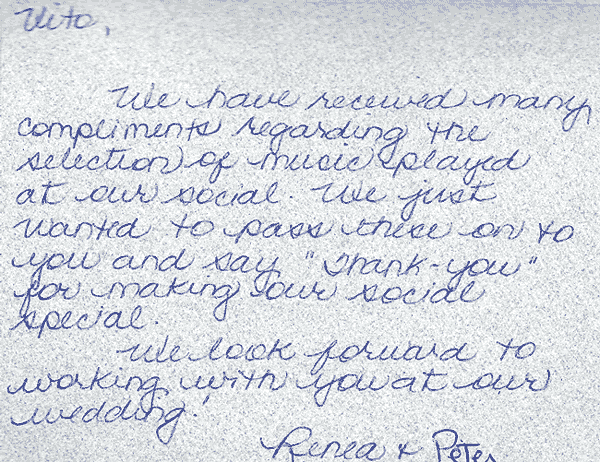 Vito,
We have received many
compliments regarding the
selection of music played
at our social. We just
wanted to pass these on to
you and say "Thank-you"
for making our social
special.
We look forward to
working with you at our
wedding!
Renea & Peter